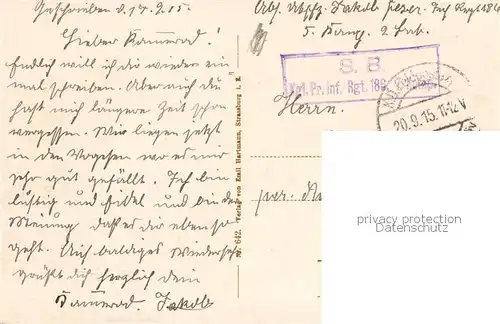 Geschrieben d. 17.9.15.
Lieber Kamerad!
Endlich will ich dir wieder ein
mal schreiben. Aber auch du
hast mich längere Zeit schon
vergessen. Wir liegen jetzt
in den Vogesen wo es mir
sehr gut gefällt. Ich bin
lustig und fidel und bin der
Meinung daß es dir ebenso
geht. Auf baldiges Wiedersehn
grüßt dich herzlich dein
Kamerad. Jakob
Nr. 642. Verlag von Emil Hartmann, Strassburg i. E.
Abs. Jakob Inf Regt 186
5. Komp.
S. B.
Kgl. Pr. Inf. Rgt. 186
Herrn.
20.9.15. 11-12 V
per.
privacy protection
Datenschutz